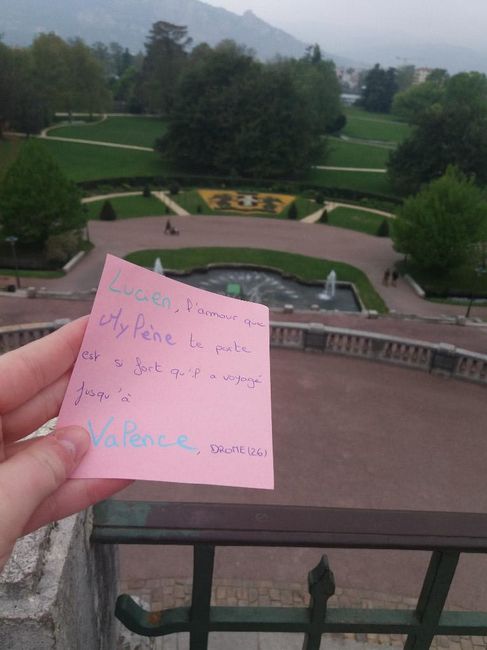 Lucien, l'amour que
Mylène te porte
est si fort qu'il a voyagé
jusqu'à
Valence, DROME(26)